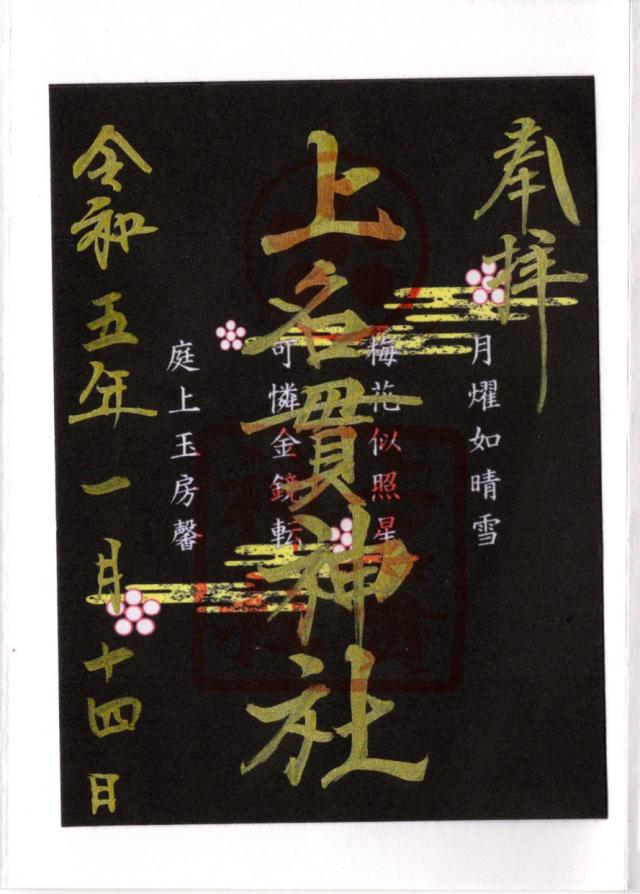 奉拝
月燿如晴雪
梅花似照星
上名貫神社
可憐金鏡転
庭上玉房馨
令和五年一月十四日